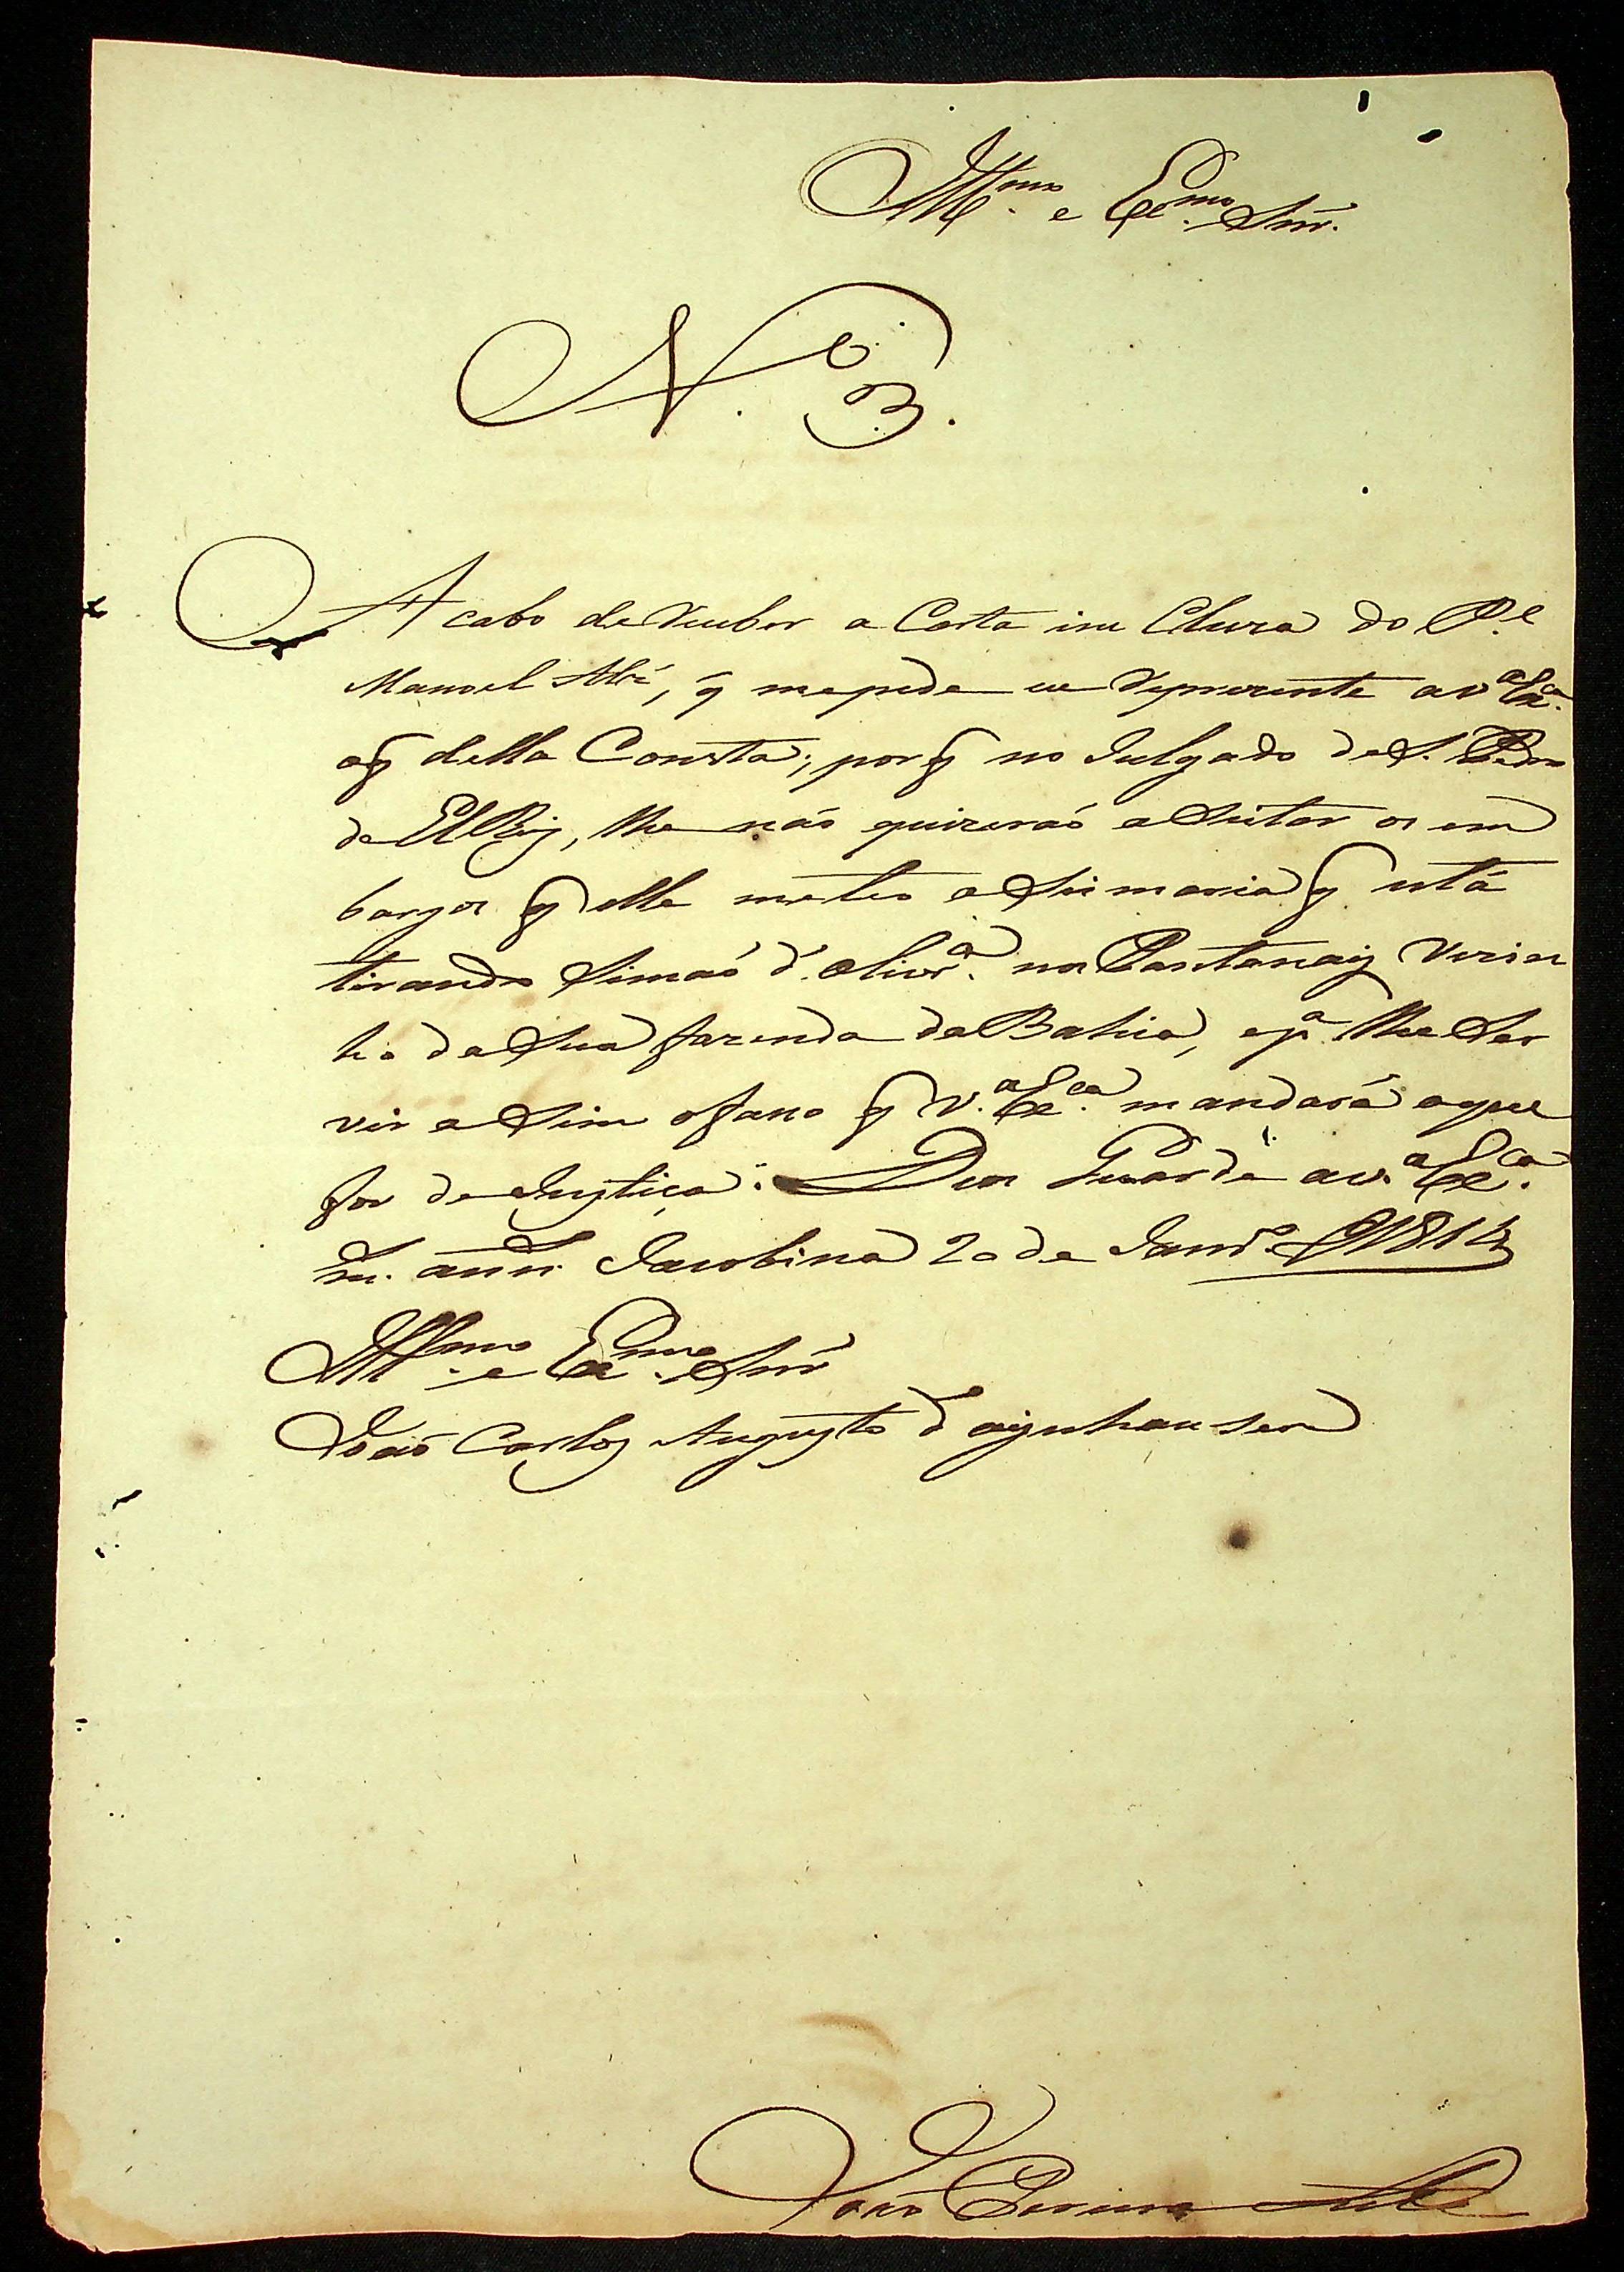 Ill.mo e Ex.mo Snr.
N.o 3.
Acabo de receber a Carta incluza do P.e
Manoel Alz', q̃ me pede eu reprezente a V.a Ex.a
o q̃ della Consta; por q̃ no Julgado de S. Pedro
de ElRey, lhe não quizerão aseitar os em
bargos q̃ elle meteo a Sismaria q̃ está
tirando Simão d'Olivr.a nos Pantanais Vizin
ho da Sua fazenda da Bahia, e p.a lhe Ser
vir a Sim o faso q̃ V.a Ex.ca mandará o que
for de Justiça. Deos Guarde a V.a Ex.ca
m. ann.s Jacobina 20 de Janr.o de 1814
Ill.mo e Ex.mo Snr
João Carlos Augusto d'oeynhausen
João Pereira Leite